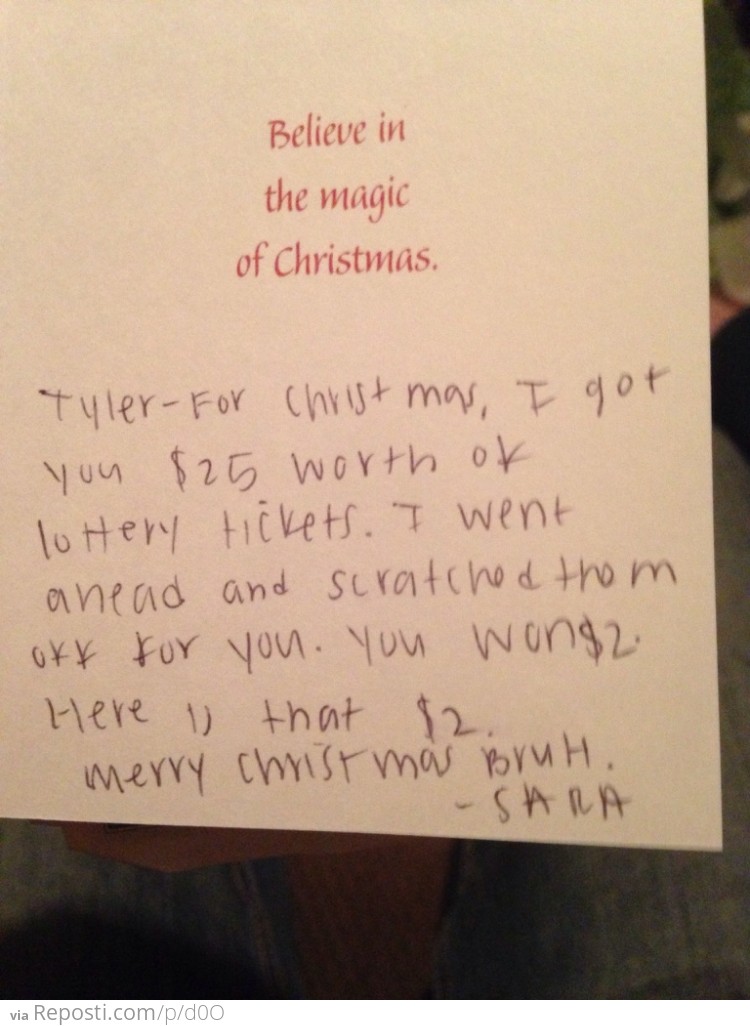 Believe in
the magic
of Christmas.
Tyler-For Christmas, I got
you $25 worth of
lottery tickets. I went
ahead and scratched them
off for you. You won $2.
Here is that $2.
merry christmas BRUH.
- SARA
via Reposti.com/p/d0O